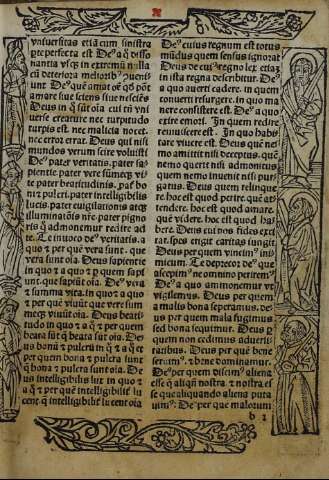 vniuersitas etiã cum sinistra
pte perfecta est. De⁹ a q̃ disso
nantia vsq̃ in extremũ nulla
cũ deteriora melioribꝰ pueni
unt. De⁹ quẽ amat om̃e qd̃ pōt
amare siue sciens siue nesciẽs
Deus in q̃ sũt oĩa cui tñ vni
verse creature nec turpitudo
turpis est. nec malicia nocet.
nec error errat. Deus qui nisi
mundos verum scire voluisti
De⁹ pater veritatis. pater sa
pientie. pater vere sũmeq̃ vi
te. pater beatitudinis. pater bo
ni ⁊ pulcri. pater intelligibilis
lucis. pater euigilationis atq̃
illuminatiõis nr̃e. pater pigno
ris q̃ admonemur redire ad
te. Te inuoco de⁹ veritatis. a
quo ⁊ per quẽ vera sunt. que
vera sunt oĩa. Deus sapientie
in quo ⁊ a quo ⁊ p̃ quem sapi
unt. que sapiũt oĩa. De⁹ vera
⁊ summa vita. in quo ⁊ a quo
⁊ per quẽ viuũt que vere sum
meq̃ viuũt oĩa. Deus beati
tudo in quo ⁊ a q̃ ⁊ per quem
beata sũt q̃ beata sut oĩa. De⁹
bonũ ⁊ pulcrũ in q̃ ⁊ a q̃ ⁊
per quem bona ⁊ pulcra sunt
q̃ bona ⁊ pulcra sunt oĩa. De
us intelligibilis lux in quo ⁊
a q̃ ⁊ per quẽ intelligibilit̃ lu
cent q̃ intelligibilit̃ lucent oĩa
De⁹ cuius regnum est totus
mũdus quem sensus ignorat
Deus de cui⁹ regno lex etiã
in ista regna describitur. De⁹
a quo auerti cadere. in quem
conuerti resurgere. in quo ma
nere consistere est. De⁹ a quo
exire emori. In quem redire
reuiuiscere est. In quo habi
tare viuere est. Deus quẽ ne
mo amittit nisi deceptus. quẽ
nemo querit nisi admonitus
quem nemo inuenit nisi pur
gatus. Deus quem relinque
re. hoc est quod perire. quẽ at
tendere. hoc est quod amare.
quẽ videre. hoc est quod ha
bere. Deus cui nos fides exci
tat. spes erigit caritas iungit.
Deus per quem vincim⁹ ini
micum. Te deprecor de⁹ que
accepim⁹ ne omnino perirem⁹
De⁹ a quo ammonemur vt
vigilemus. Deus per quem
a malis bona separamus. de
us per quem mala fugimus
sed bona sequimur. Deus p̃
quem non cedimus aduersi
tatibus. Deus per quẽ bene
seruim⁹. ⁊ bene dominamur.
De⁹ per quem discim⁹ aliena
esse q̃ aliqñ nostra. ⁊ nostra es
se que aliquando aliena puta
uim⁹. De⁹ per que malorum
b 1